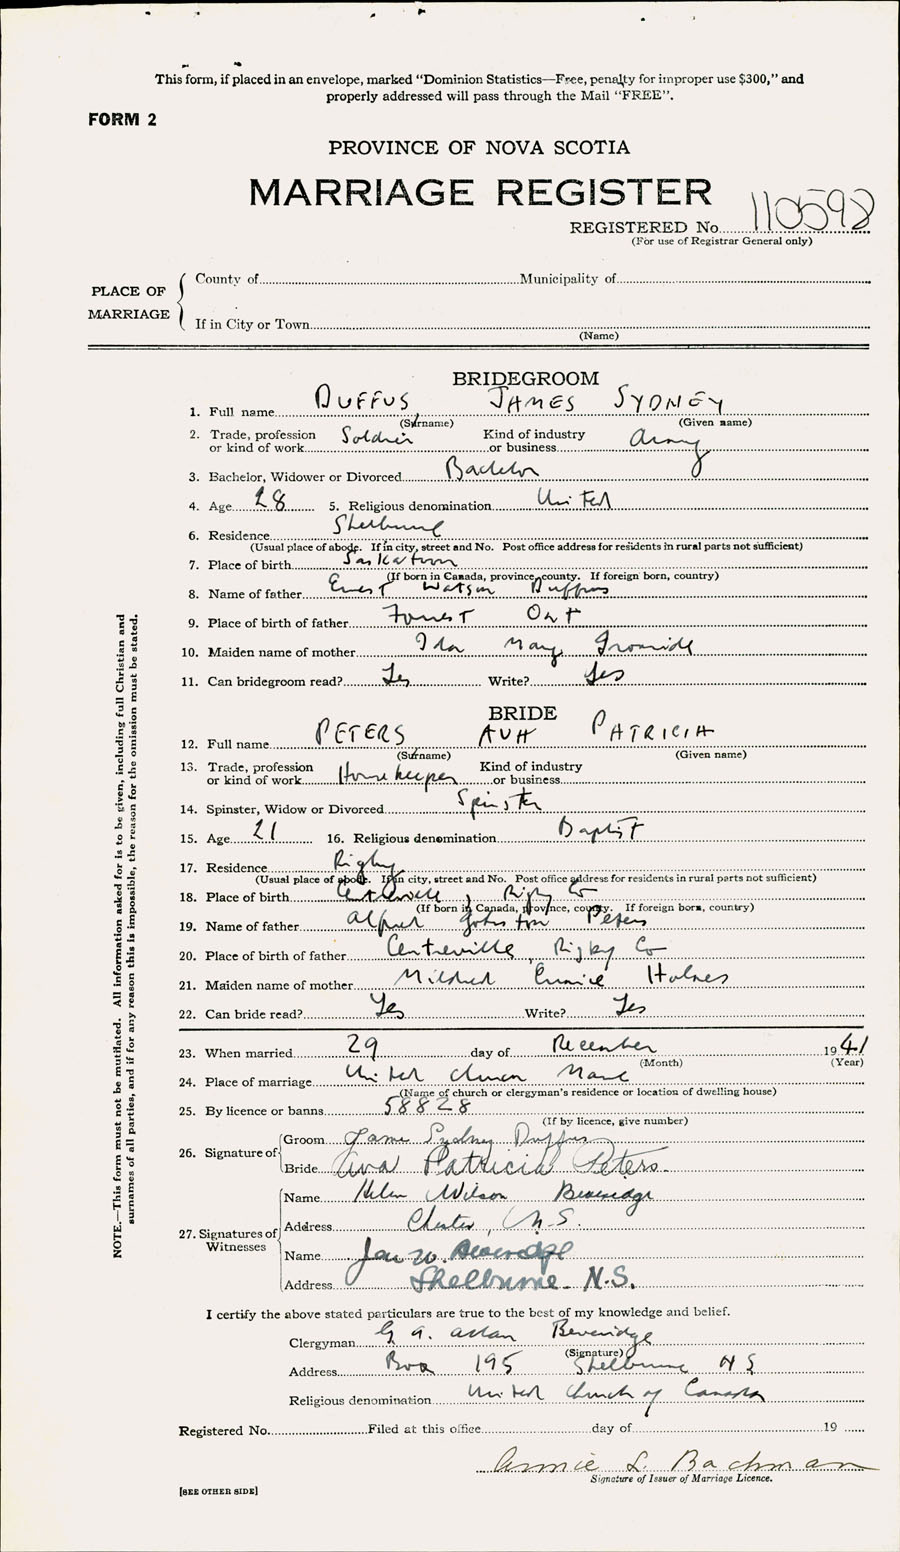 This form, if placed in an envelope, marked "Dominion Statistics—Free, penalty for improper use $300," and
properly addressed will pass through the Mail "FREE".
FORM 2
PROVINCE OF NOVA SCOTIA
MARRIAGE REGISTER
REGISTERED No. 110598
(For use of Registrar General only)
PLACE OF MARRIAGE
County of Municipality of
If in City or Town
(Name)
BRIDEGROOM
1. Full name DUFFUS, JAMES SYDNEY
(Surname) (Given name)
2. Trade, profession or kind of work Soldier Kind of industry or business Army
3. Bachelor, Widower or Divorced Bachelor
4. Age 28 5. Religious denomination United
6. Residence Shelburne
(Usual place of abode. If in city, street and No. Post office address for residents in rural parts not sufficient)
7. Place of birth Saskatoon
(If born in Canada, province, county. If foreign born, country)
8. Name of father Ernest Watson Duffus
9. Place of birth of father Forrest Ont
10. Maiden name of mother Ida May
11. Can bridegroom read? Yes Write? Yes
BRIDE
12. Full name PETERS AVA PATRICIA
(Surname) (Given name)
13. Trade, profession or kind of work Housekeeper Kind of industry or business
14. Spinster, Widow or Divorced Spinster
15. Age 21 16. Religious denomination Baptist
17. Residence Rigby
(Usual place of abode. If in city, street and No. Post office address for residents in rural parts not sufficient)
18. Place of birth Centreville, Rigby Co
(If born in Canada, province, county. If foreign born, country)
19. Name of father Alfred Johnston Peters
20. Place of birth of father Centreville, Rigby Co
21. Maiden name of mother Mildred Eunice Holmes
22. Can bride read? Yes Write? Yes
23. When married 29 day of December 1941
(Month) (Year)
24. Place of marriage United Church Manse
(Name of church or clergyman's residence or location of dwelling house)
25. By licence or banns 58828
(If by licence, give number)
26. Signature of
Groom James Sydney Duffus
Bride Ava Patricia Peters.
27. Signatures of Witnesses
Name Helen Wilson Beveridge
Address Chester, N.S.
Name W. Beveridge
Address Shelburne N.S.
I certify the above stated particulars are true to the best of my knowledge and belief.
Clergyman G. A. Allan Beveridge
(Signature)
Address Box 195 Shelburne N S
Religious denomination United Church of Canada
Registered No. Filed at this office day of 19
Annie L. Bachman
Signature of Issuer of Marriage Licence.
[SEE OTHER SIDE]
NOTE.—This form must not be mutilated. All information asked for is to be given, including full Christian and
surnames of all parties, and if for any reason this is impossible, the reason for the omission must be stated.